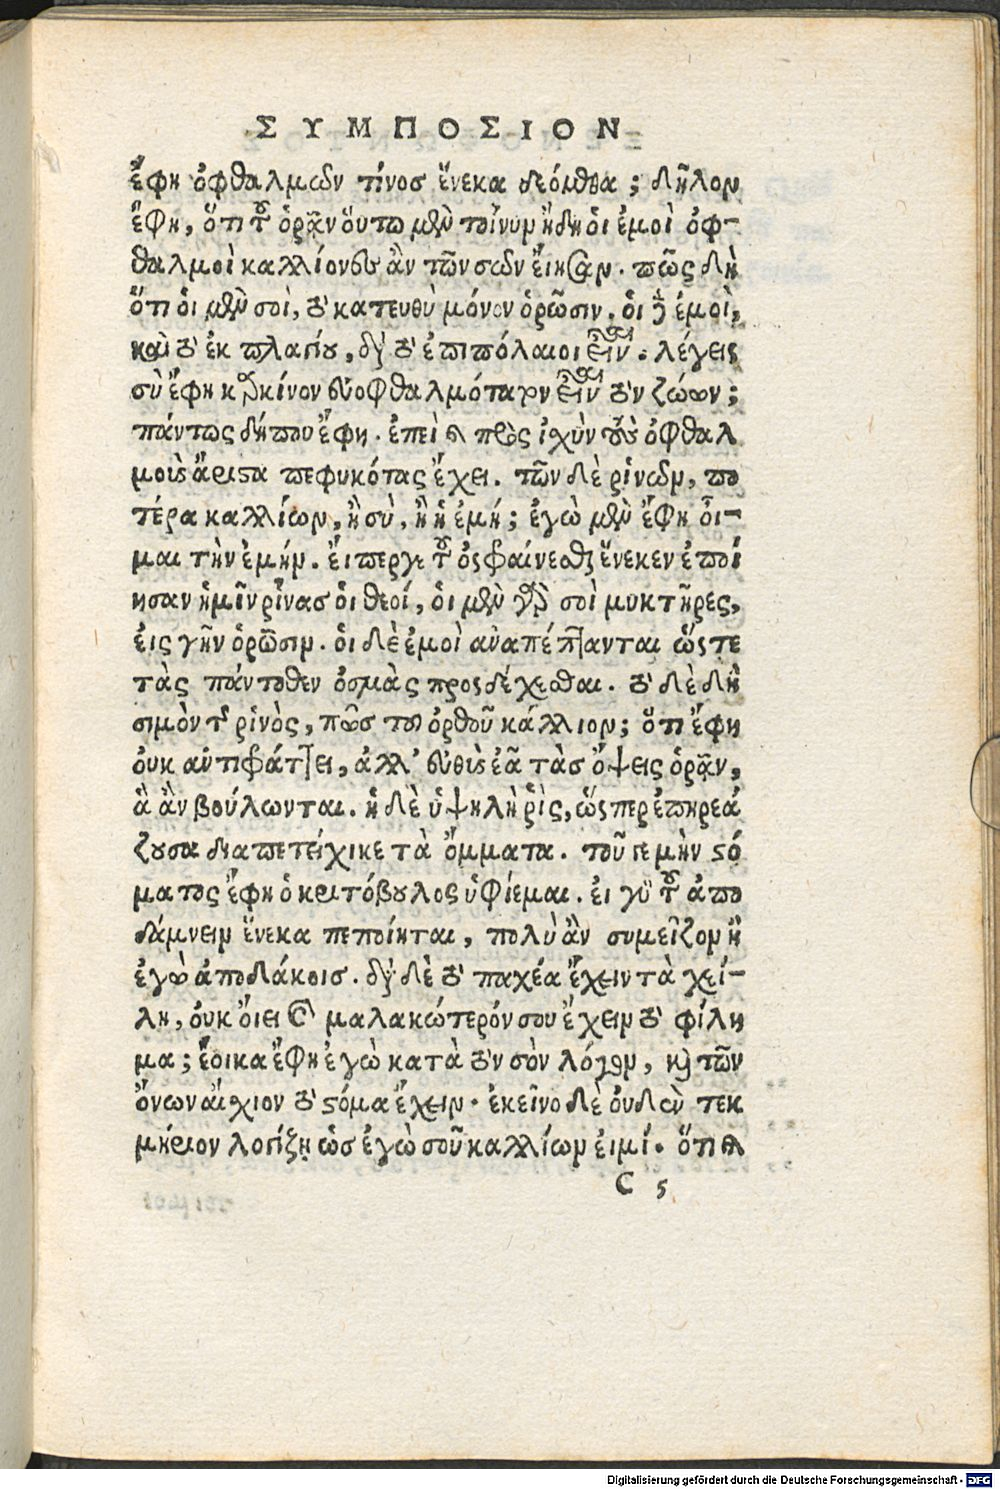 ΣΥΜΠΟΣΙΟΝ
ἔφη ὀφθαλμῶν τίνοσ ἕνεκα δεόμεθα; δῆλον
ἔφη, ὅτι τοῦ ὁρᾷν οὕτω μὲν τοίνυν ἤδη ὁι ἐμοὶ ὀφ-
θαλμοὶ καλλίονες ἂν τῶν σῶν ἔιησαν. πῶς δὴ
ὅτι ὁι μὲν σοὶ, τὸ κατευθὺ μόνον ὁρῶσιν. ὁι δὲ ἐμοὶ,
καὶ τὸ ἐκ πλαγίου, διὰ τὸ ἐπιπόλαιοι εἶναι. λέγεις
σὺ ἔφη καρκίνον ἐυοφθαλμότατον εἶναι τῶν ζώων;
πάντως δήπου ἔφη. ἐπεὶ καὶ πρὸς ἰχὺν τοὺς ὀφθαλ
μοὺς ἄριστα πεφυκότας ἔχει. τῶν δὲ ῥίνων, πο
τέρα καλλίων, ἢ σὺ, ἢ ἡ ἐμή; ἐγὼ μὲν ἔφη ὄι-
μαι τὴν ἐμήν. ἔιπερ γε τοῦ ὀσφραίνεσθαι ἕνεκεν ἐποί
ησαν ἡμῖν ῥῖνασ ὁι θεοί, ὁι μὲν γὰρ σοὶ μυκτῆρες,
ἐις γῆν ὁρῶσιν. ὁι δὲ ἐμοὶ ἀναπέπτανται ὥστε
τὰς πάντοθεν ὀσμὰς προσδέχεσθαι. τὸ δὲ δὴ
σιμὸν τῆς ῥινὸς, πῶσ τοῦ ὀρθοῦ κάλλιον; ὅτι ἔφη
ὀυκ ἀντιφράττει, ἀλλ' ἐυθὺς ἐᾶ τὰσ ὄψεις ὁρᾷν,
ἃ ἂν βούλωνται. ἡ δὲ ὑψηλὴ ῥὶς, ὥσπερ ἐπηρεά
ζουσα διαπετείχικε τὰ ὄμματα. τοῦ γε μὴν στό
ματος ἔφη ὁ κριτόβουλος ὑφίεμαι. ἐι γὰρ τοῦ ἀπο
δάμνειν ἕνεκα πεποίηται, πολὺ ἂν συ μεῖζον ἢ
ἐγὼ ἀποδάκοισ. διὰ δὲ τὸ παχέα ἔχειν τὰ χεί-
λη, ὀυκ ὄιει καὶ μαλακώτερόν σου ἔχειν τὸ φίλη
μα; ἔοικα ἔφη ἐγὼ κατὰ τὸν σὸν λόγον, καὶ τῶν
ὄνων ἄισχιον τὸ στόμα ἔχειν. ἐκεῖνο δὲ ὀυδὲν τεκ
μήριον λογίζῃ ὡσ ἐγὼ σοῦ καλλίων ἐιμί. ὅτι καὶ
C 5
Digitalisierung gefördert durch die Deutsche Forschungsgemeinschaft - DFG